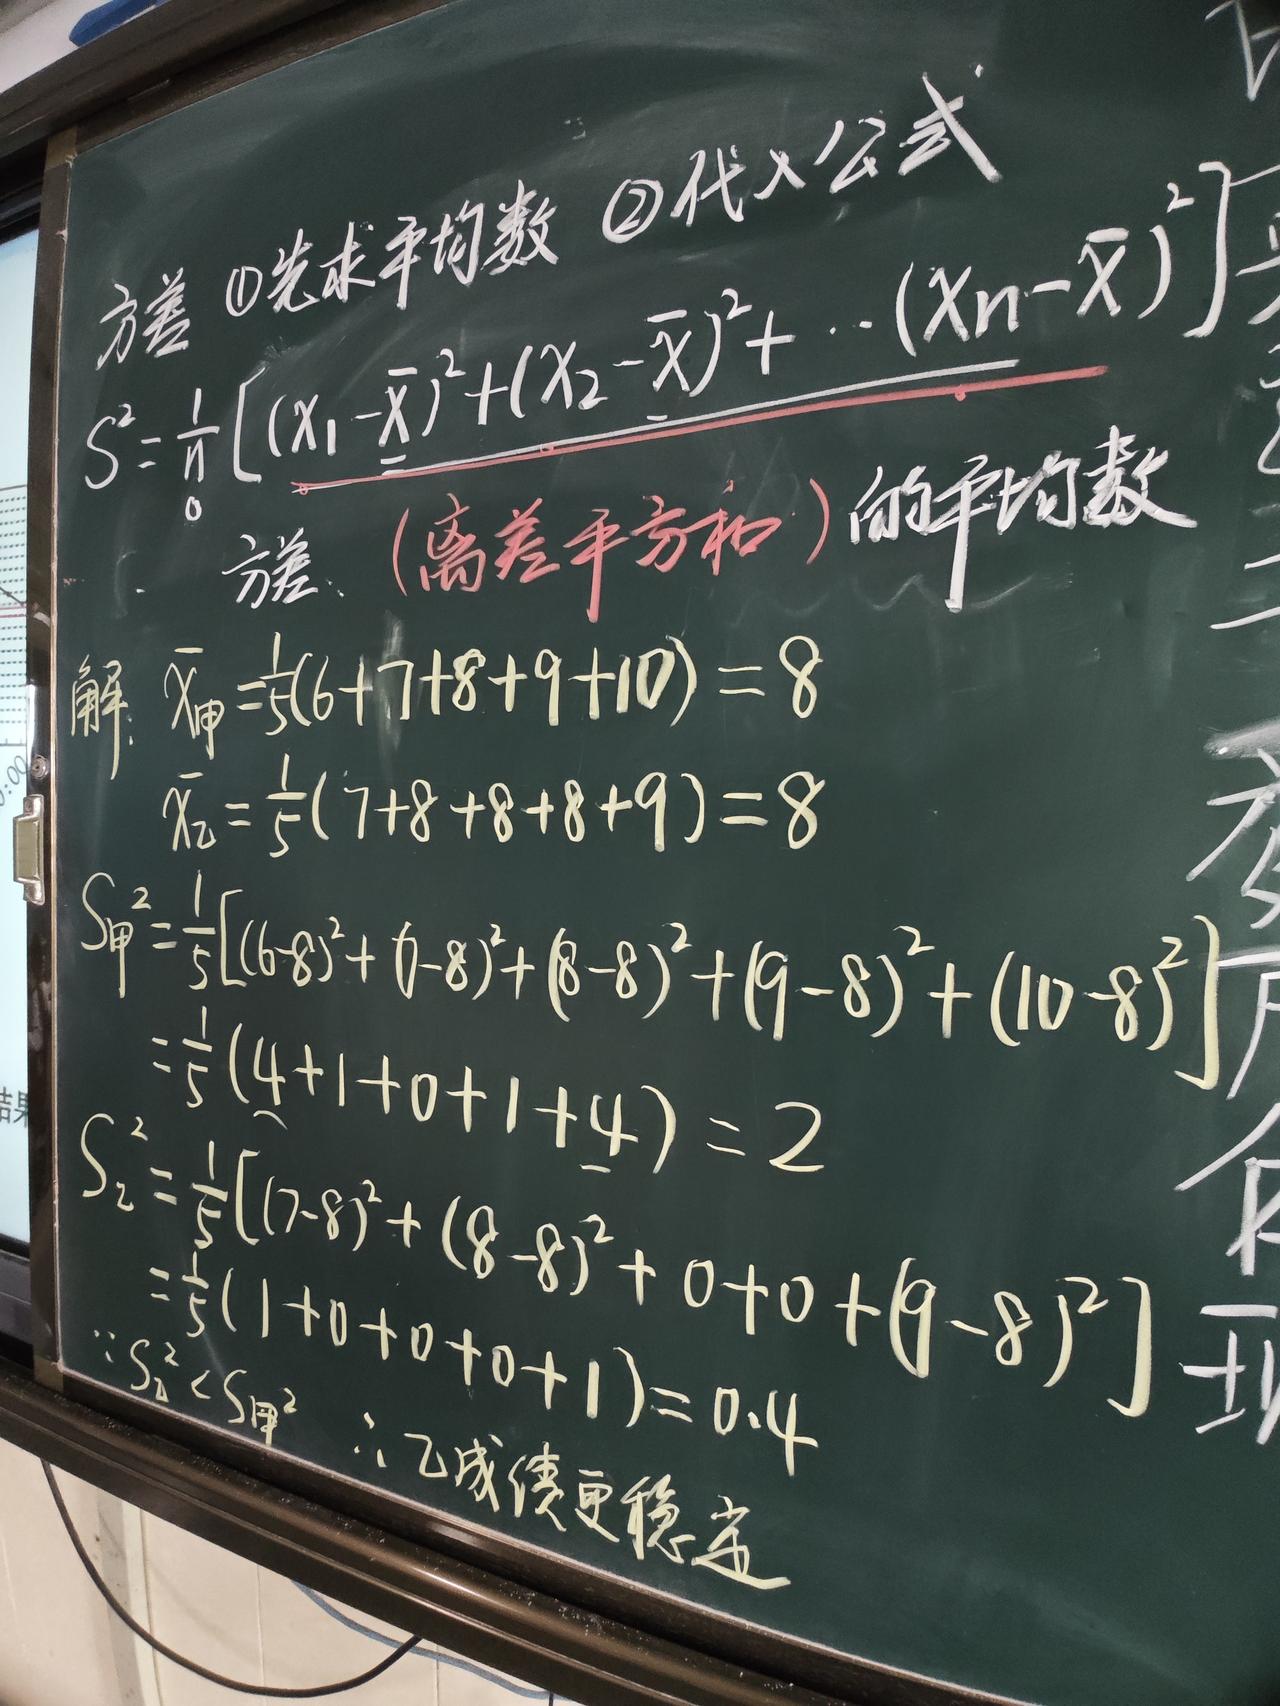 方差 ①先求平均数 ②代入公式
S²=1/n[(x₁-x̄)²+(x₂-x̄)²+…(xn-x̄)²]
方差.(离差平方和)的平均数
解. x̄甲=1/5(6+7+8+9+10)=8
x̄乙=1/5(7+8+8+8+9)=8
S甲²=1/5[(6-8)²+(7-8)²+(8-8)²+(9-8)²+(10-8)²]
=1/5(4+1+0+1+4)=2
S乙²=1/5[(7-8)²+(8-8)²+0+0+(9-8)²]
=1/5(1+0+0+0+1)=0.4
∵S乙²<S甲² ∴乙成绩更稳定